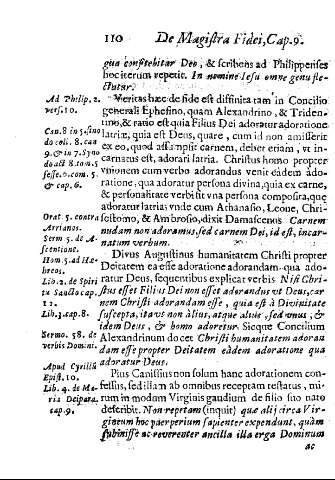 110 De Magistra Fidei, Cap. 9.
gua confitebitur Deo, & scribens ad Philippenses
hoc iterum repetit. In nomine Iesu omne genu fle-
ctutur.
Veritas hæc de fide est diffinita tam in Concilio
generali Ephesino, quam Alexandrino, & Triden-
tino, & ratio est quia Filius Dei adoratur adoratione
latriæ, quia est Deus, quare, cum id non amisserit
ex eo, quod assumpsit carnem, debet etiam, vt in-
carnatus est, adorari latria. Christus homo propter
vnionem cum verbo adorandus venit eadem ado-
ratione, qua adoratur persona divina, quia ex carne,
& personalitate verbi fit vna persona composita, quę
adoratur latria, vnde cum Athanasio, Leone, Chri-
sostomo, & Ambrosio, dixit Damascenus Carnem
nudam non adoramus, sed carnem Dei, id est, incar-
natum verbum.
Divus Augustinus humanitatem Christi propter
Deitatem ea esse adoratione adorandam, qua ado-
ratur Deus, sequentibus explicat verbis Nisi Chri-
stus esset Filius Dei non esset adorandus vt Deus, car-
nem Christi adorandam esse, quia est à Divinitate
suscepta, ita vs non alius, atque alius, sed vnus, &
idem Deus, & homo adoretur. Sicque Concilium
Alexandrinum docet Christi humanitatem adoran
dam esse propter Deitatem eàdem adoratione qua
adoratur Deus.
Pius Canissius non solum hanc adorationem con-
fessus, sed illam ab omnibus receptam testatus, mi-
rum in modum Virginis gaudium de filio suo nato
describit. Non repetam (inquit) quæ alij circa Vir-
gineum hoc puerperium sapienter expendunt, quàm
submisse ac reverenter ancilla illa erga Dominum
ac
Ad Philip. 2.
vers. 10.
Can. 8 in 5. sino
do coli. 8. can
9. & in 7. syno
do act 8. tom. 5
sesse. 6. com. 5
& cap. 6.
Orat. 5. contra
Arrianos.
Serm 5. de A-
scentione.
Hom. 5. ad He-
breos.
Lib. 2. de Spiri
tu Sancto cap.
12.
Lib. 3. cap. 8.
Sermo. 58. de
verbis Domini.
Apud Cyrillũ
Epist. 10.
Lib. 4. de Ma-
ria Deipara,
cap. 9.